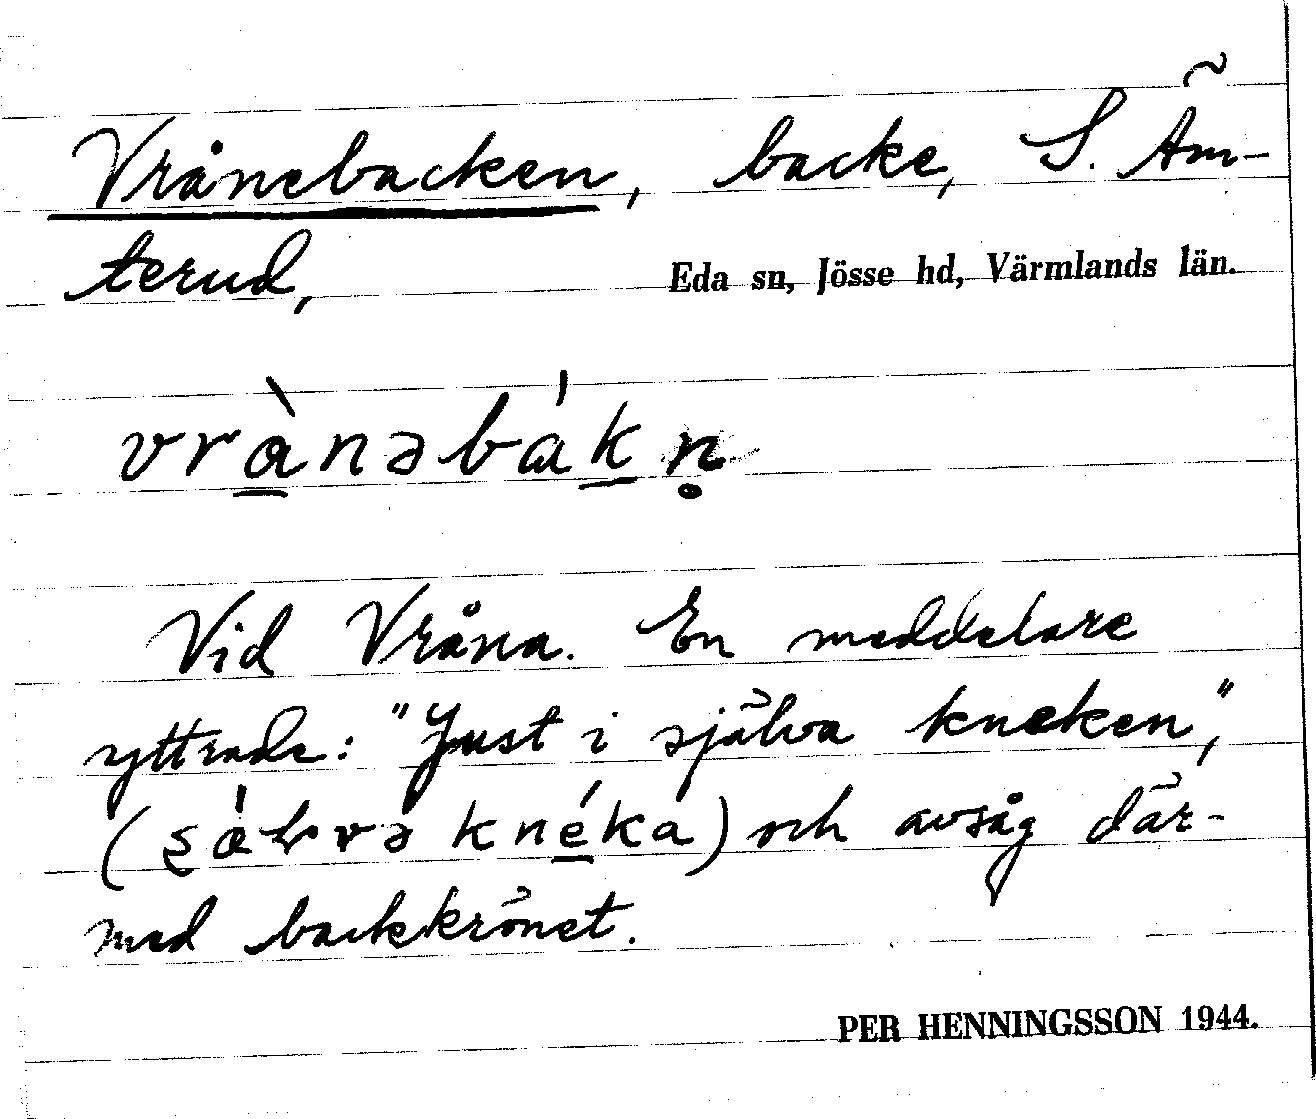 Vrånebacken, backe, S. Äm-
terud,
Eda sn, Jösse hd, Värmlands län.
vrànəbákn̥
Vid Vråna. En meddelare
yttrade: "Just i själva kneken",
(ʂàɽvə knéka) och avsåg där-
med backkrönet.
PER HENNINGSSON 1944.